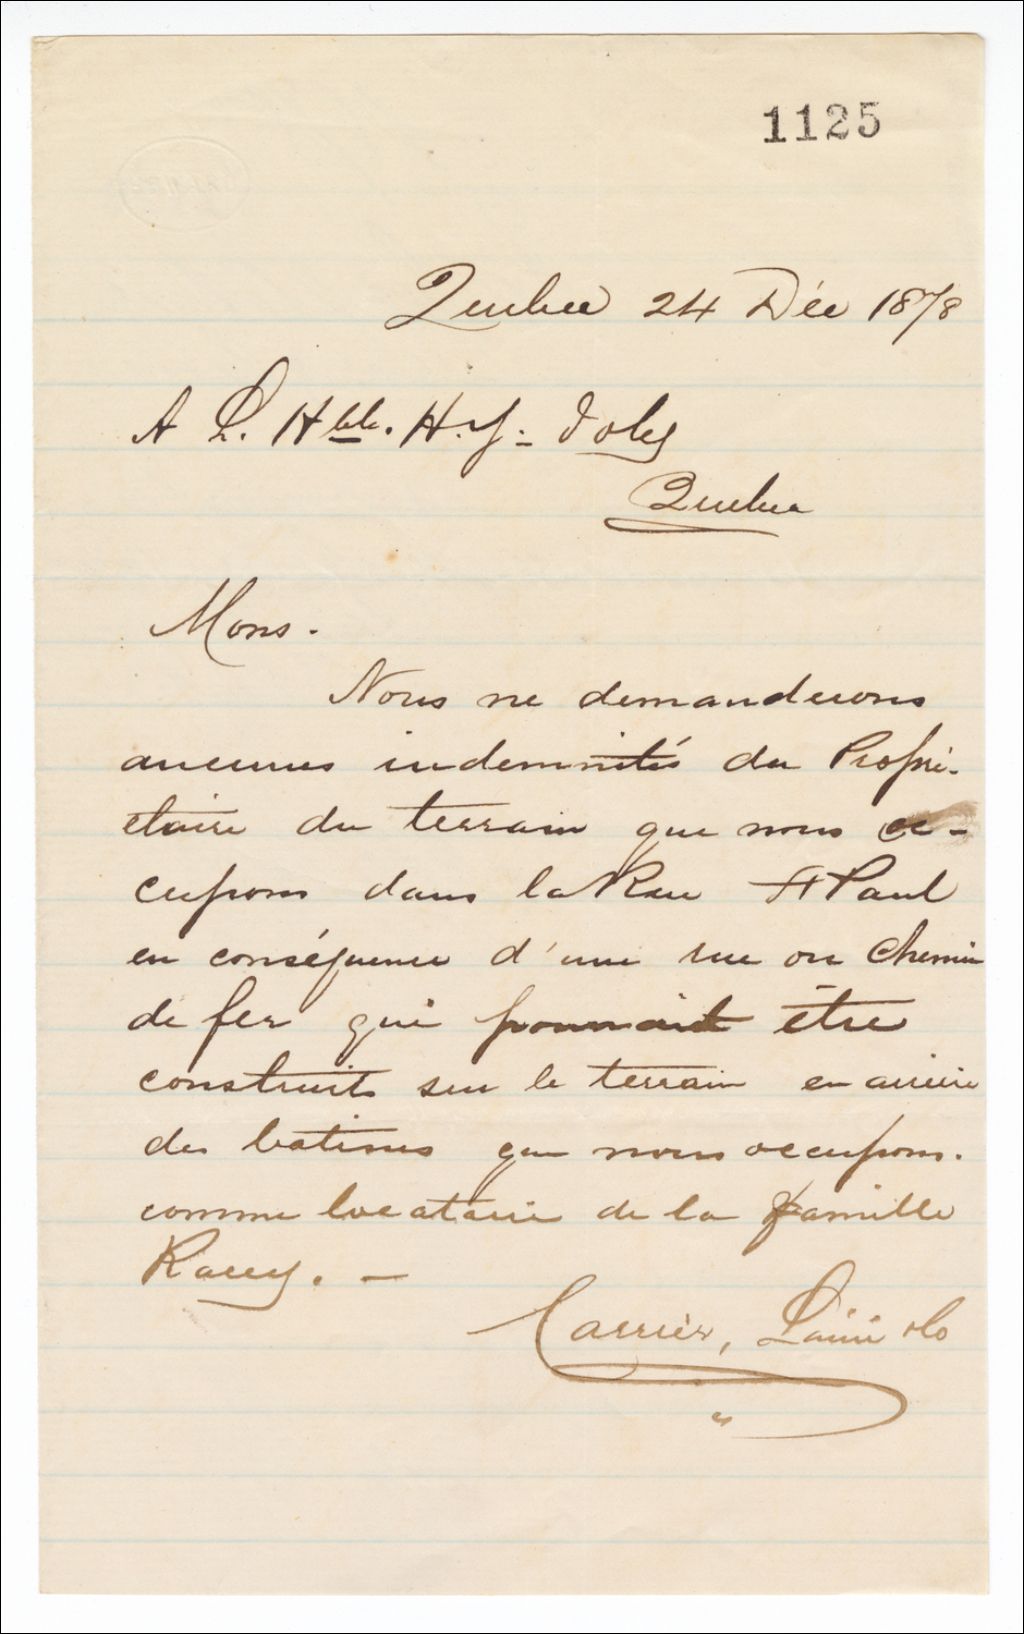 1125
Quebec 24 Déc 1878
A L. Hble. H. J. Joly
Quebec
Mons.
Nous ne demanderons
aucunes indemnités du Propri-
étaire du terrain que nous oc-
cupons dans la Rue St Paul
en conséquence d'une rue ou Chemin
de fer qui pourrait être
construit sur le terrain en arrière
des batisses que nous occupons.
comme locataire de la famille
Racey. —
Carrier, Lainé & Co